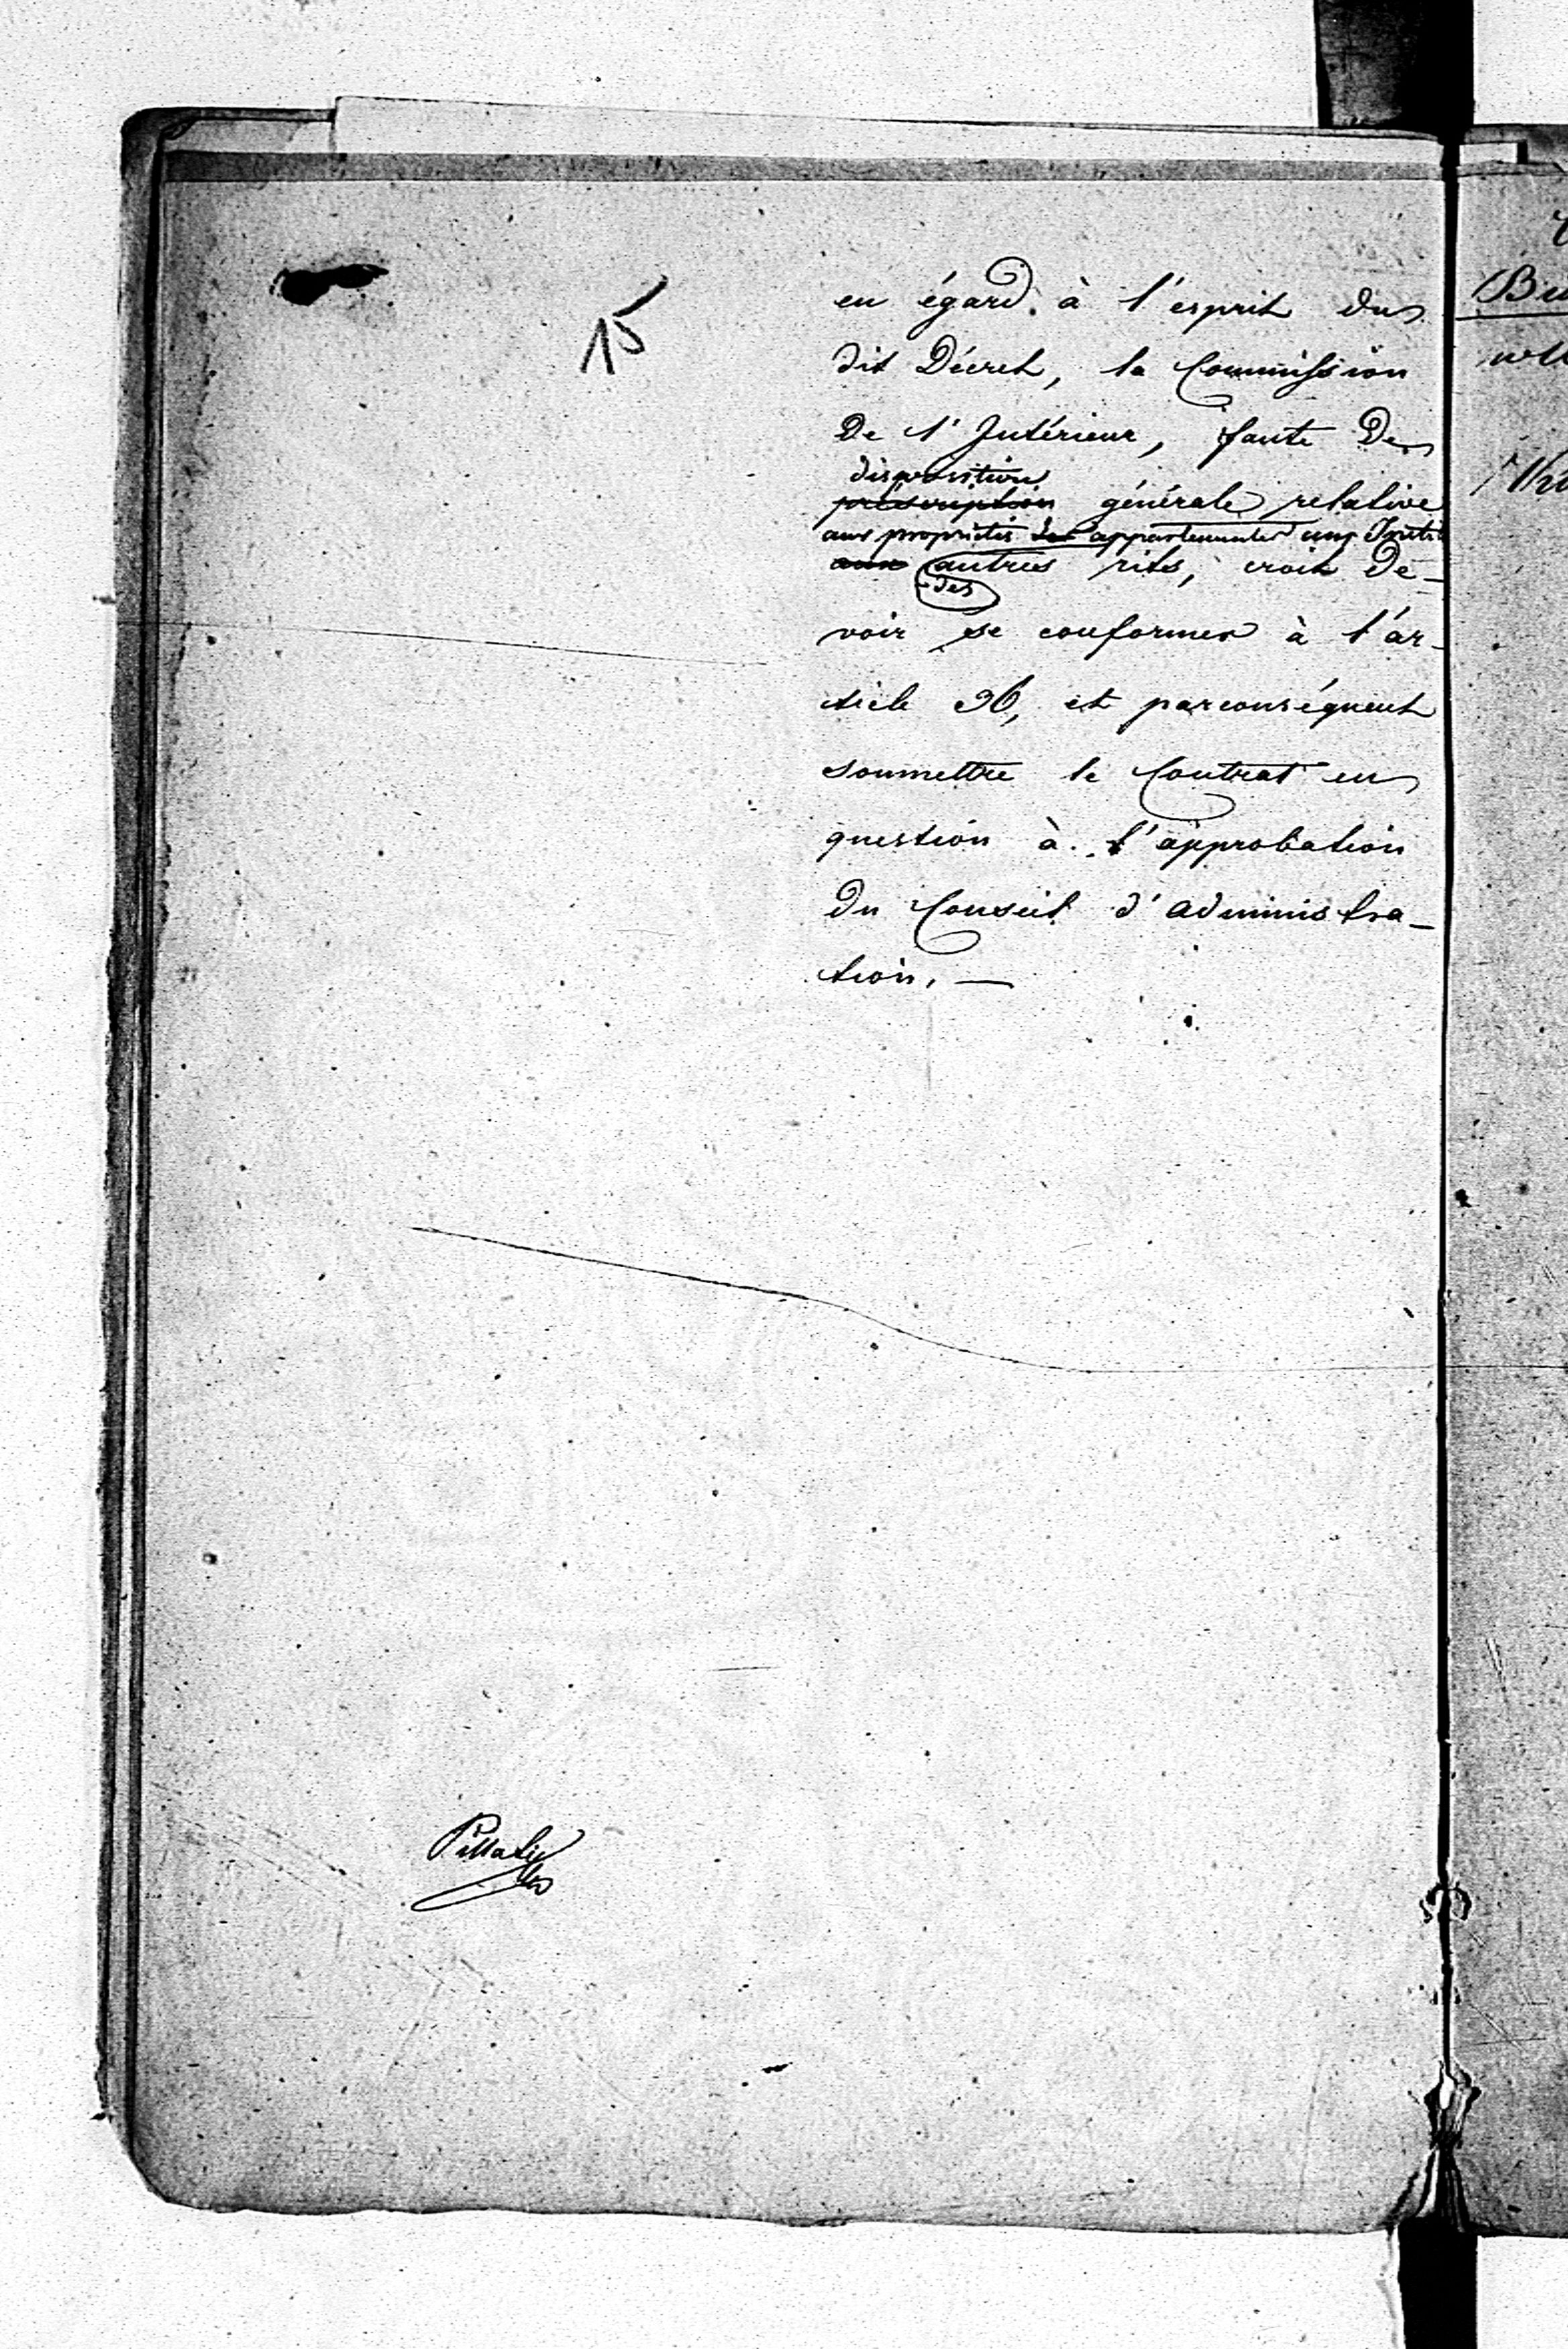 15
en égard à l'esprit du
dit Décret, la Commission
De l'Intérieur, faute De
disposition
prescription générale relative
aux propriétés des appartenantes aux Instit
aux autres rits, croit De-
des
voir se conformer à l'ar-
ticle 36, et parconséquent
soumettre le Contrat en
question à l'approbation
Du Conseil d'administra-
tion. —